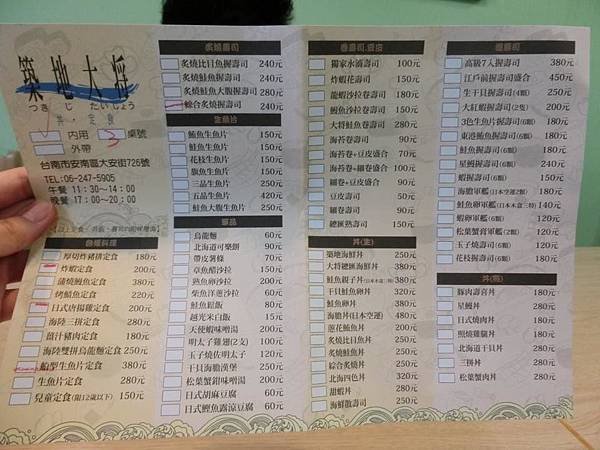 築地大将
つきじ たいしょう
丼・定食
內用 3 桌號
外帶
台南市安南區大安街726號
TEL:06-247-5905
午餐 11:30~14:00
晚餐 17:00~20:00
厚切炸豬排定食 180元
炸蝦定食 200元
蒲燒鰻魚定食 380元
烤鯖魚定食 220元
日式唐揚雞定食 200元
海陸三拼定食 280元
薑汁豬肉定食 180元
海陸雙拼烏龍麵定食 250元
船型生魚片定食 380元
生魚片定食 280元
兒童定食(限12歲以下) 150元
炙燒壽司
炙燒比目魚握壽司 240元
炙燒鮭魚握壽司 240元
炙燒鮭魚大腹握壽司 280元
綜合炙燒握壽司 240元
生魚片
鮪魚生魚片 150元
鮭魚生魚片 150元
花枝生魚片 150元
旗魚生魚片 150元
三品生魚片 250元
五品生魚片 420元
單品
烏龍麵 60元
北海道可樂餅 90元
帶皮薯條 70元
章魚醋沙拉 150元
熟魚卵沙拉 200元
柴魚洋蔥沙拉 60元
鮭魚鬆飯 80元
越光米白飯 15元
天使蝦味噌湯 200元
明太子雞翅(2支) 100元
玉子燒佐明太子 120元
干貝海膽漢堡 250元
松葉蟹鉗味噌湯 200元
日式胡麻豆腐 60元
日式鰹魚露涼豆腐 60元
卷壽司.豆皮
獨家水滴壽司 100元
炸蝦花壽司 150元
龍蝦沙拉卷壽司 180元
鰻魚沙拉卷壽司 150元
大將鮭魚卷壽司 280元
海苔卷壽司 90元
海苔卷+豆皮盛合 70元
海苔卷+細卷盛合 100元
細卷+豆皮盛合 60元
豆皮壽司 50元
細卷壽司 50元
總匯熟壽司 150元
丼(生)
築地海鮮丼 250元
大將總匯海鮮丼 380元
鮭魚卵丼 380元
海膽丼(日本空運) 480元
蔥花鮪魚丼 250元
炙燒比目魚丼 250元
炙燒鮭魚丼 250元
綜合炙燒丼 250元
北海四色丼 320元
甜蝦丼 280元
海鮮散壽司 250元
握壽司
高級7人握壽司 380元
江戶前握壽司盛合 450元
生干貝握壽司(4顆) 250元
大紅蝦握壽司(2隻) 200元
3色生魚片握壽司(6顆) 180元
東港鮪魚握壽司(6顆) 180元
鮭魚握壽司(6顆) 180元
星鰻握壽司 240元
蝦握壽司(6顆) 150元
海膽軍艦(日本空運2顆) 180元
蝦卵軍艦壽司(6顆) 120元
松葉蟹膏軍艦(6顆) 120元
玉子燒壽司(6顆) 120元
花枝握壽司(6顆) 180元
丼(熟)
豚肉壽喜丼 180元
星鰻丼 280元
日式燒肉丼 180元
照燒雞腿丼 180元
北海道干貝丼 280元
三拼丼 280元
松葉蟹肉丼 280元